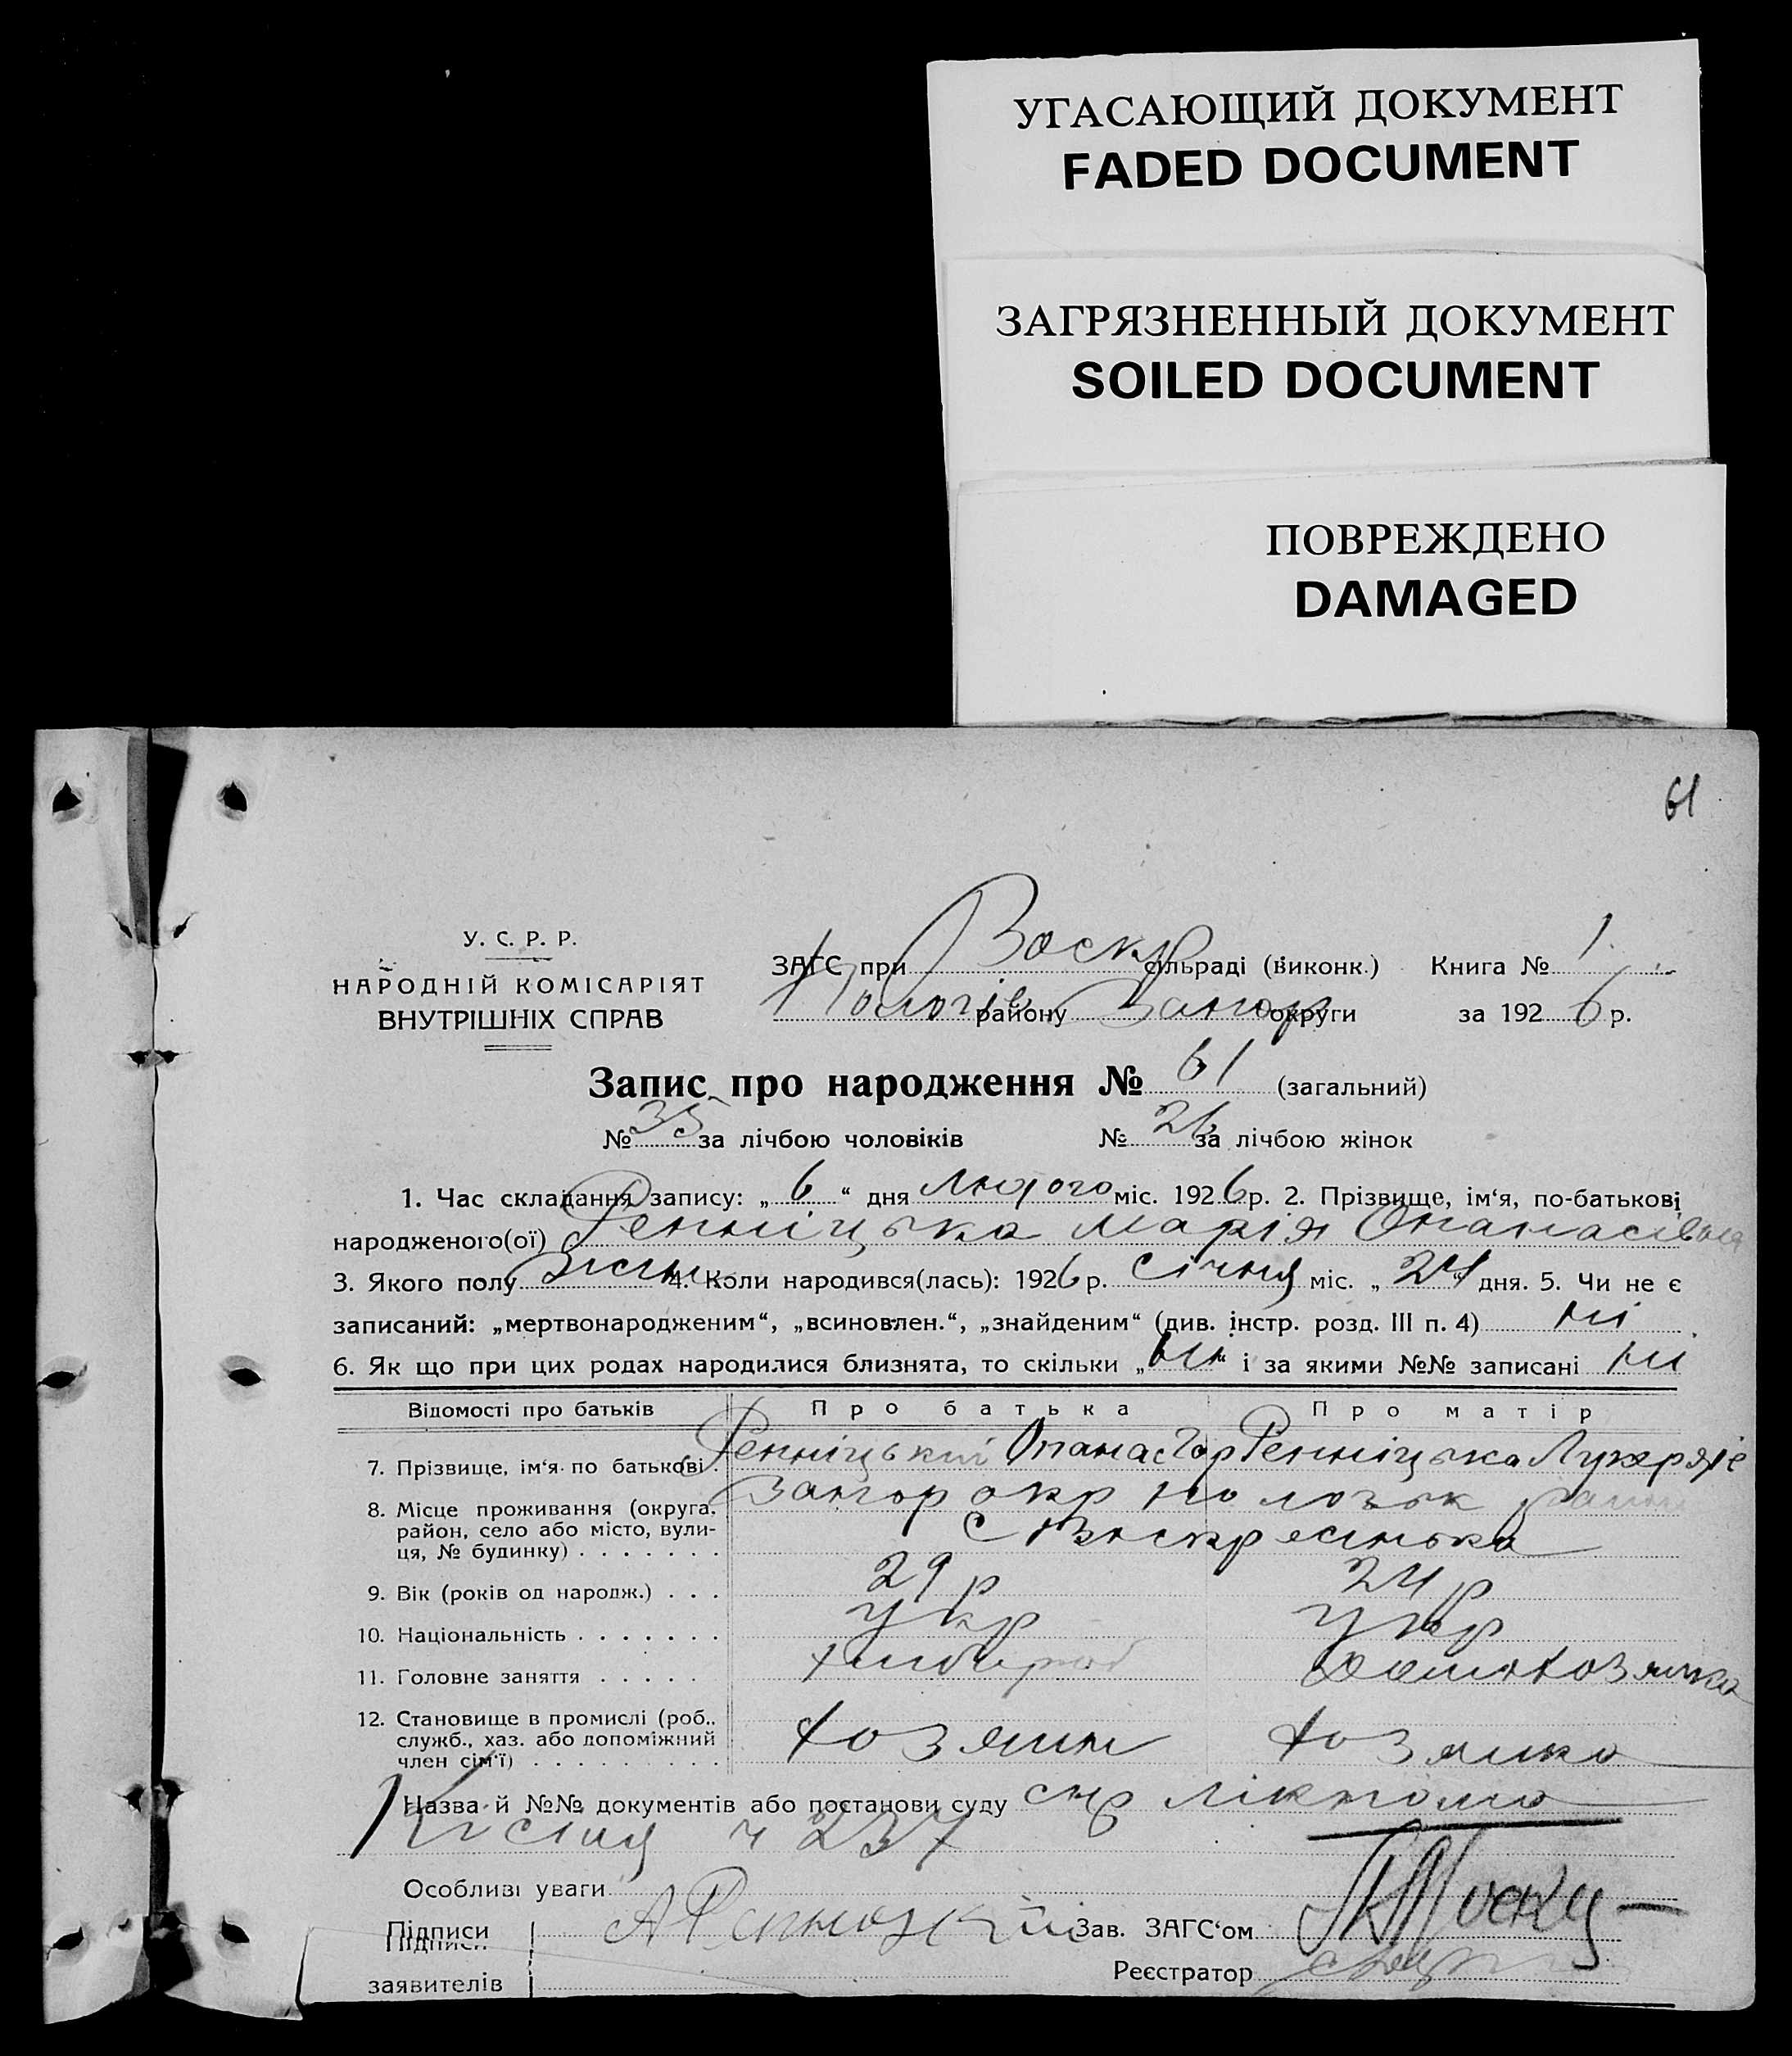 УГАСАЮЩИЙ ДОКУМЕНТ
FADED DOCUMENT
ЗАГРЯЗНЕННЫЙ ДОКУМЕНТ
SOILED DOCUMENT
ПОВРЕЖДЕНО
DAMAGED
61
У. С. Р. Р.
НАРОДНІЙ КОМІСАРІЯТ
ВНУТРІШНІХ СПРАВ
ЗАГС при Воскр сільраді (виконк.) Книга № 1
Пологів району Запор округи за 1926 р.
Запис про народження № 61 (загальний)
№ 35 за лічбою чоловіків № 26 за лічбою жінок
1. Час складання запису: „ 6 “ дня Лютого міс. 1926 р. 2. Прізвище, ім‘я, по-батькові
народженого(ої) Ренніцька Марія Опанасівна
3. Якого полу жін 4. Коли народився(лась): 1926 р. Січня міс. „ 24 дня. 5. Чи не є
записаний: „мертвонародженим“, „всиновлен.“, „знайденим“ (див. інстр. розд. III п. 4) ні
6. Як що при цих родах народилися близнята, то скільки „ “ і за якими №№ записані ні
Відомості про батьків Про батька Про матір
7. Прізвище, ім‘я по батькові Ренніцький Опанас Гор Ренніцька Лукеря
8. Місце проживання (округа, район, село або місто, вулиця, № будинку) Запор окр Пологськ район
с Воскресенька
9. Вік (років од народж.) 29 р 24 р
10. Національність укр укр
11. Головне заняття хлібороб домохозяйка
12. Становище в промислі (роб., служб., хаз. або допоміжний член сім‘ї) хозяин хозяйка
Назва й №№ документів або постанови суду
ч 237
Особливі уваги
Підписи Зав. ЗАГС‘ом
заявителів Реєстратор